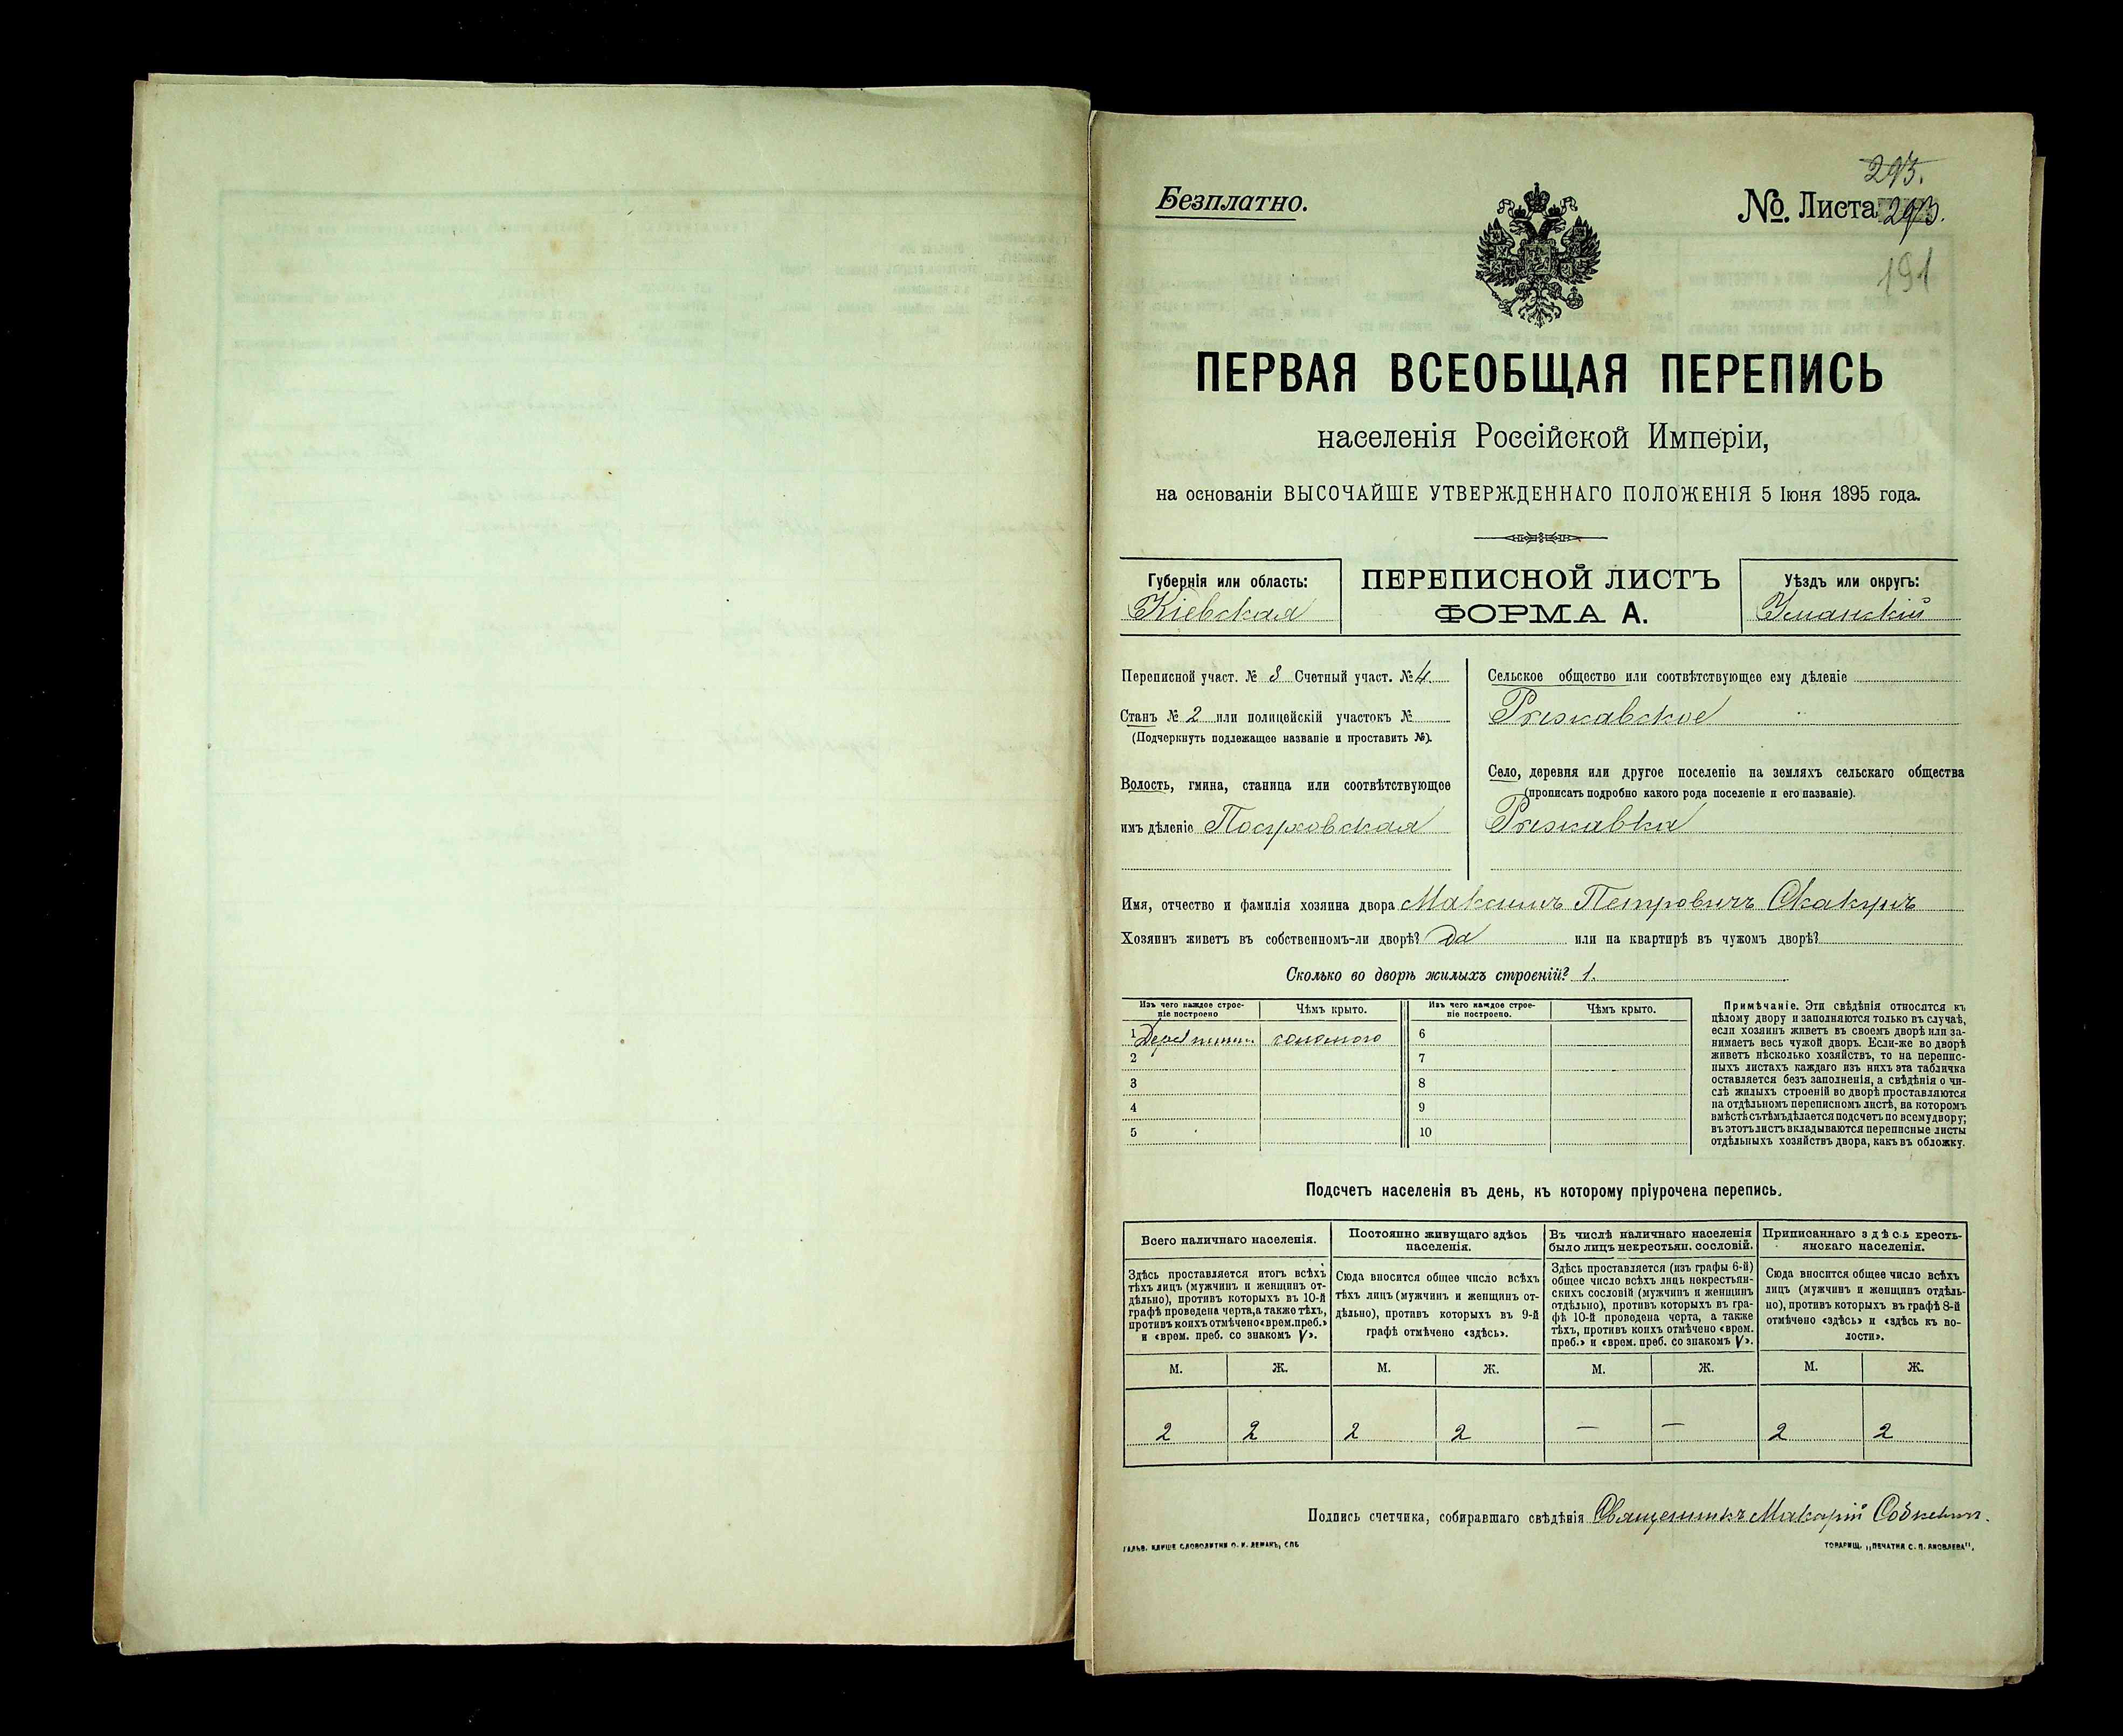 293.
Безплатно.
№ Листа 293.
191
ПЕРВАЯ ВСЕОБЩАЯ ПЕРЕПИСЬ
населенія Россійской Имперіи,
на основаніи ВЫСОЧАЙШЕ УТВЕРЖДЕННАГО ПОЛОЖЕНІЯ 5 Іюня 1895 года.
Губернія или область:
Кіевская
ПЕРЕПИСНОЙ ЛИСТЪ
ФОРМА А.
Уѣздъ или округъ:
Уманскій
Переписной участ. № 8 Счетный участ. № 4.
Станъ № 2 или полицейскій участокъ №
(Подчеркнуть подлежащее названіе и проставить №).
Волость, гмина, станица или соотвѣтствующее
имъ дѣленіе Посуховская
Сельское общество или соотвѣтствующее ему дѣленіе
Рыжавское
Село, деревня или другое поселеніе на земляхъ сельскаго общества
(прописать подробно какого рода поселеніе и его названіе).
Рыжавка
Имя, отчество и фамилія хозяина двора Максимъ Петровичъ Скакунъ
Хозяинъ живетъ въ собственномъ-ли дворѣ? Да или на квартирѣ въ чужомъ дворѣ?
Сколько во дворѣ жилыхъ строеній? 1.
Изъ чего каждое строе-
ніе построено
Чѣмъ крыто.
Изъ чего каждое строе-
ніе построено.
Чѣмъ крыто.
1 соломою 6
2 7
3 8
4 9
5 10
Примѣчаніе. Эти свѣдѣнія относятся къ
цѣлому двору и заполняются только въ случаѣ,
если хозяинъ живетъ въ своемъ дворѣ или за-
нимаетъ весь чужой дворъ. Если-же во дворѣ
живетъ нѣсколько хозяйствъ, то на перепис-
ныхъ листахъ каждаго изъ нихъ эта табличка
оставляется безъ заполненія, а свѣдѣнія о чи-
слѣ жилыхъ строеній во дворѣ проставляются
на отдѣльномъ переписномъ листѣ, на которомъ
вмѣстѣ съ тѣмъ дѣлается подсчетъ по всему двору;
въ этотъ листъ вкладываются переписные листы
отдѣльныхъ хозяйствъ двора, какъ въ обложку.
Подсчетъ населенія въ день, къ которому пріурочена перепись.
Всего наличнаго населенія.
Постоянно живущаго здѣсь
населенія.
Въ числѣ наличнаго населенія
было лицъ некрестьян. сословій.
Приписаннаго здѣсь кресть-
янскаго населенія.
Здѣсь проставляется итогъ всѣхъ
тѣхъ лицъ (мужчинъ и женщинъ от-
дѣльно), противъ которыхъ въ 10-й
графѣ проведена черта, а также тѣхъ,
противъ коихъ отмѣчено «врем. преб.»
и «врем. преб. со знакомъ V».
Сюда вносится общее число всѣхъ
тѣхъ лицъ (мужчинъ и женщинъ от-
дѣльно), противъ которыхъ въ 9-й
графѣ отмѣчено «здѣсь».
Здѣсь проставляется (изъ графы 6-й)
общее число всѣхъ лицъ некрестьян-
скихъ сословій (мужчинъ и женщинъ
отдѣльно), противъ которыхъ въ гра-
фѣ 10-й проведена черта, а также
тѣхъ, противъ коихъ отмѣчено «врем.
преб.» и «врем. преб. со знакомъ V».
Сюда вносится общее число всѣхъ
лицъ (мужчинъ и женщинъ отдѣль-
но), противъ которыхъ въ графѣ 8-й
отмѣчено «здѣсь» и «здѣсь къ во-
лости».
М. Ж. М. Ж. М. Ж. М. Ж.
2 2 2 2 — — 2 2
Подпись счетчика, собиравшаго свѣдѣнія Священникъ Макарій Собкевич.
ГАЛЬВ. КЛИШЕ СЛОВОЛИТНИ О. И. ЛЕМАНЪ, СПБ
ТОВАРИЩ. „ПЕЧАТНЯ С. П. ЯКОВЛЕВА".